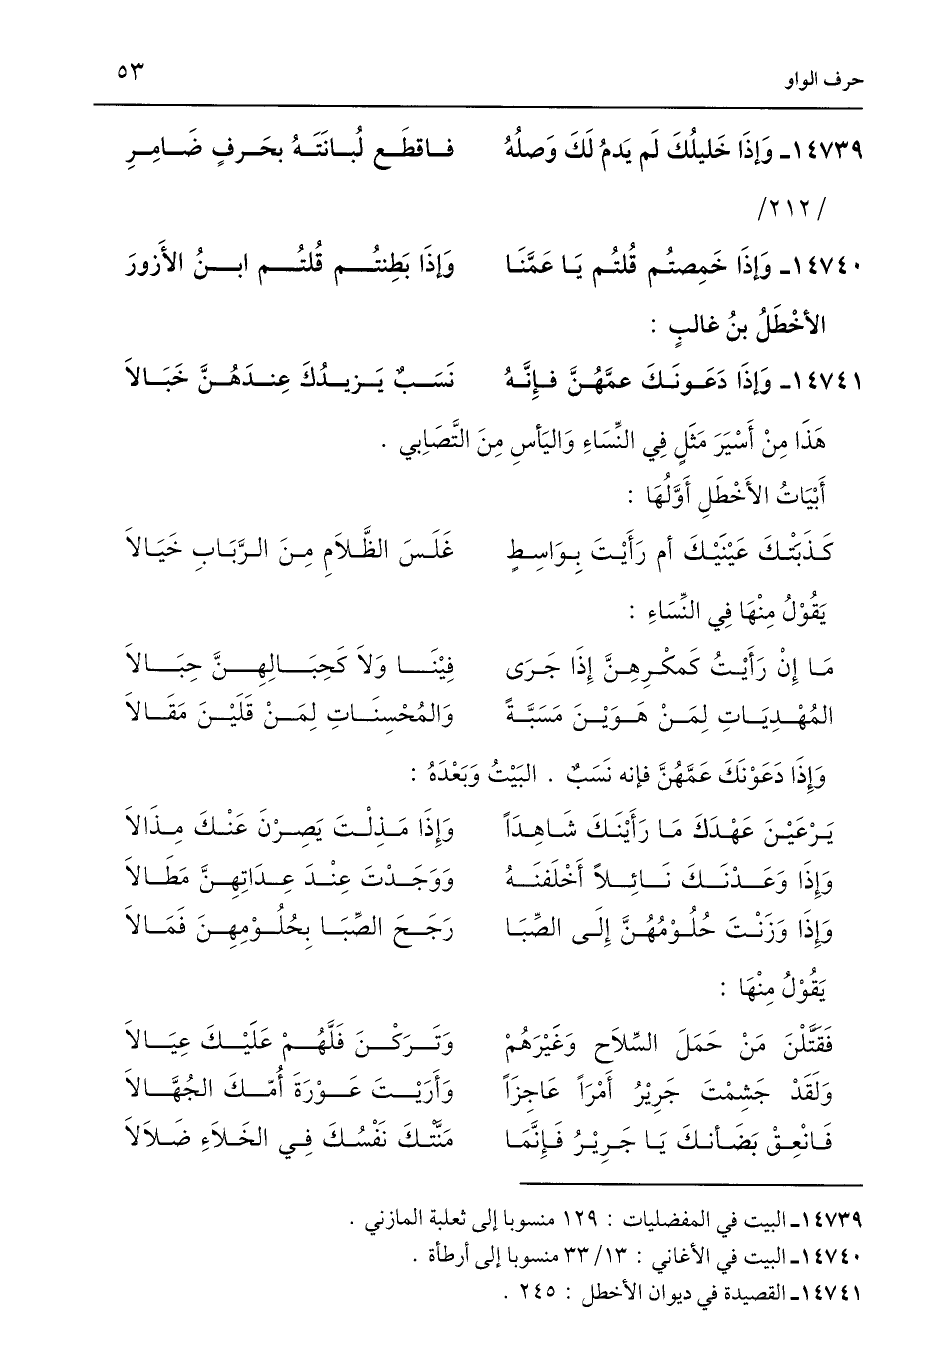 حرف الواو ٥٣
١٤٧٣٩ـ وَإِذَا خَلِيلُكَ لَم يَدمُ لَكَ وَصلُهُ فَاقطَع لُبَانَتَهُ بحَرفٍ ضَامِرِ
/٢١٢/
١٤٧٤٠ـ وَإِذَا خَمِصتُم قُلتُم يَا عَمَّنَا وَإِذَا بَطِنتُم قُلتُم ابنُ الأَزورَ
الأخْطَلُ بنُ غالبٍ :
١٤٧٤١ـ وَإِذَا دَعَونَكَ عمَّهُنَّ فإِنَّهُ نَسَبٌ يَزيدُكَ عِندَهُنَّ خَبَالاَ
هَذَا مِنْ أَسْيَرَ مَثَلٍ فِي النِّسَاءِ وَاليَأسِ مِنَ التَّصَابِي .
أَبْيَاتُ الأَخْطَلِ أَوَّلُهَا :
كَذَبَتْكَ عَيْنَيْكَ أم رَأَيْتَ بِوَاسِطٍ غَلَسَ الظَّلاَمِ مِنَ الرَّبَابِ خَيَالاَ
يَقُوْلُ مِنْهَا فِي النِّسَاءِ :
مَا إِنْ رَأَيْتُ كَمكرِهِنَّ إِذَا جَرَى فِيْنَا وَلاَ كَحِبَالِهِنَّ حِبَالاَ
المُهْدِيَاتِ لِمَنْ هَوِيْنَ مَسَبَّةً وَالمُحْسِنَاتِ لِمَنْ قَلَيْنَ مَقَالاَ
وَإِذَا دَعَوْنَكَ عَمَّهُنَّ فإنه نَسَبٌ . البَيْتُ وَبَعْدَهُ :
يَرْعَيْنَ عَهْدَكَ مَا رَأَيْنَكَ شَاهِدَاً وَإِذَا مَذِلْتَ يَصِرْنَ عَنْكَ مِذَالاَ
وَإِذَا وَعَدْنَكَ نَائِلاً أَخْلَفنَهُ وَوَجَدْتَ عِنْدَ عِدَاتِهِنَّ مَطَالاَ
وَإِذَا وَزَنْتَ حُلُوْمُهُنَّ إِلَى الصِّبَا رَجَحَ الصِّبَا بِحُلُوْمِهِنَ فَمَالاَ
يَقُوْلُ مِنْهَا :
فَقَتَّلْنَ مَنْ حَمَلَ السِّلاَحِ وَغَيْرَهُمْ وَتَرَكْنَ فَلَّهُمْ عَلَيْكَ عِيَالاَ
وَلَقَدْ جَشِمْتَ جَرِيْرُ أَمْرَاً عَاجِزَاً وَأَرَيْتَ عَوْرَةَ أُمّكَ الجُهَّالاَ
فَانْعِقْ بَضَأنكَ يَا جَرِيْرُ فَإِنَّمَا مَنَّتْكَ نَفْسُكَ فِي الخَلاَءِ ضَلاَلاَ
١٤٧٣٩ـ البيت في المفضليات : ١٢٩ منسوبا إلى ثعلبة المازني .
١٤٧٤٠ـ البيت في الأغاني : ٣٣/١٣ منسوبا إلى أرطأة .
١٤٧٤١ـ القصيدة في ديوان الأخطل : ٢٤٥ .